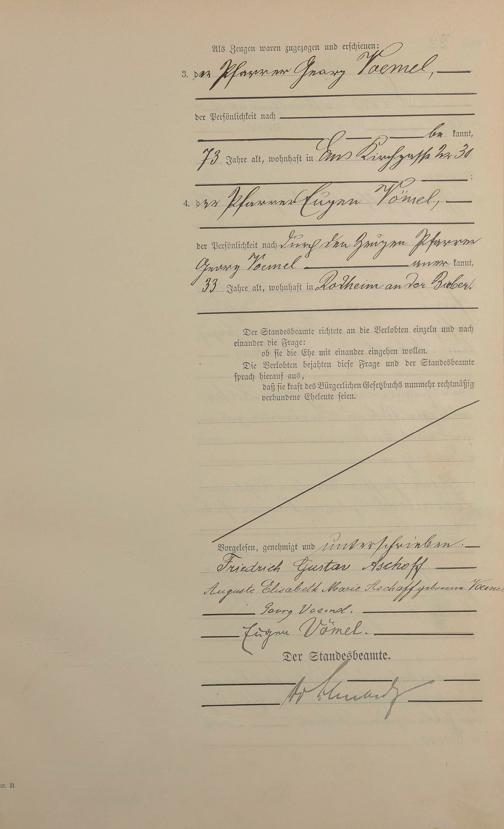 Als Zeugen waren zugezogen und erschienen:
3. der Pfarrer Georg Voemel,
der Persönlichkeit nach
be kannt,
73 Jahre alt, wohnhaft in Ems Kirchgasse 30
;
4. der Pfarrer Eugen Vömel,
der Persönlichkeit nach durch den Zeugen Pfarrer
Georg Voemel aner kannt,
33 Jahre alt, wohnhaft in Rotheim an der Bieber.
Der Standesbeamte richtete an die Verlobten einzeln und nach
einander die Frage:
ob sie die Ehe mit einander eingehen wollen.
Die Verlobten bejahten diese Frage und der Standesbeamte
sprach hierauf aus,
daß sie kraft des Bürgerlichen Gesetzbuchs nunmehr rechtmäßig
verbundene Eheleute seien.
Vorgelesen, genehmigt und unterschrieben.
Friedrich Gustav Aschoff
Auguste Elisabeth Marie Aschoff geborene
Georg Voemel.
Eugen Vömel.
Der Standesbeamte.
B